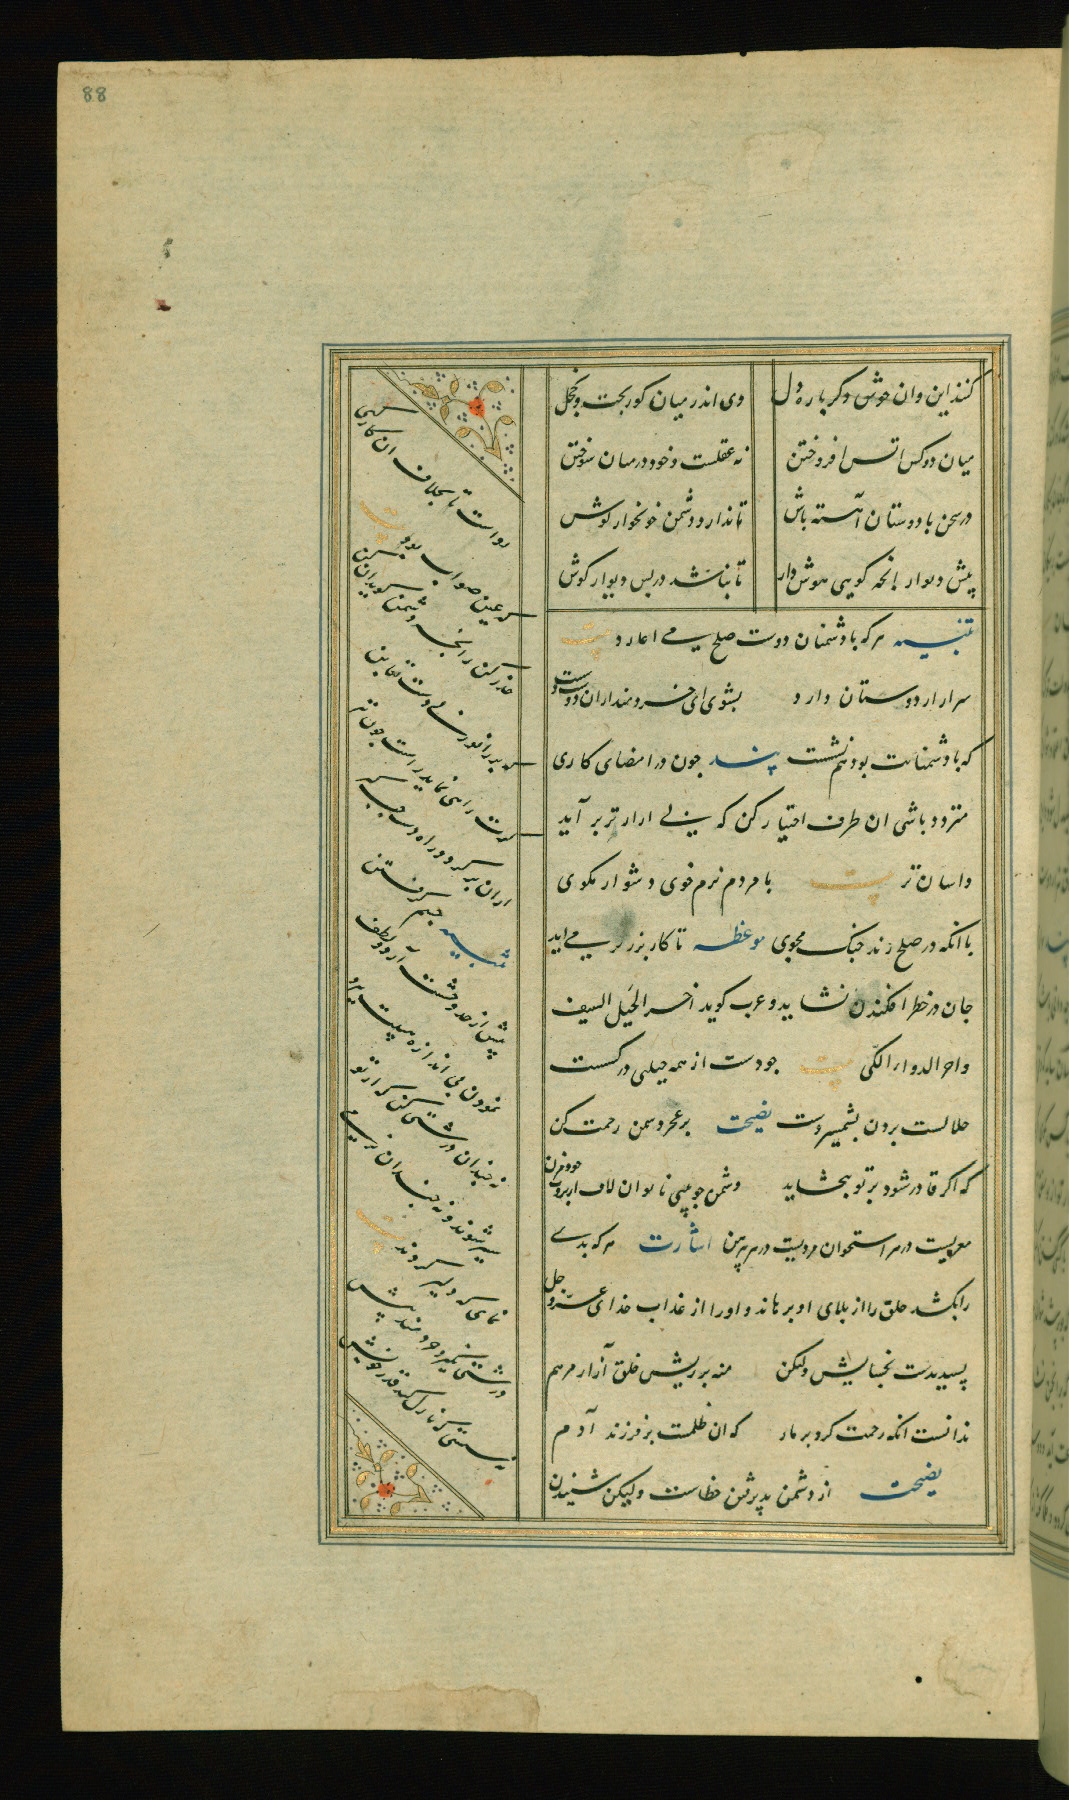 88
کنند این وان خوش دگرباره دل وی اندر میان کوربخت و خجل
میان دو کس اتش افروختن نه عقلست و خود درمیان سوختن
در سخن با دوستان آهسته باش تا ندارد دشمن خونخوار کوش
پیش دیوار انچه کویی هوش دار تا نباشد در پس دیوار کوش
تنبیه هر که با دشمنان دوست صلح می بیت
سر ازار دوستان دارد بشوی ای خردمند از ان دوست دست
که با دشمنانت بود هم نشست پند جون در امضای کاری
متردد باشی ان طرف اختیار کن که بی ازار تر بر آید
واسان تر بیت با مردم نرم خوی دشوار مکوی
با انکه در صلح زند جنک مجوی موعظه تا کار بزر بر می اید
جان در خطر افکندن نشاید و عرب کوید اخر الحیل السیف
واخر الدوا الکی بیت جو دست از همه حیلتی در کسست
حلالست بردن بشمیر دست نصیحت بر عجز دشمن رحمت مکن
که اکر قادر شود بر تو نبخشاید دشمن جو بینی ناتوان لاف از بروت خود مزن
مغزیست در هر استخوان مردیست در هر پیرهن اشارت هر که بدی
را بکشد خلق را از بلای او برهاند و او را از عذاب خدای عز و جل
پسندیدست بخشایش ولکن منه بر ریش خلق آزار مرهم
ندانست انکه رحمت کرد بر مار که ان ظلمست بر فرزند آدم
نصیحت از دشمن پدیرفتن خطاست ولیکن شنیدن
رواست تا بخلاف ان کار کنی
که عین صواب بود بیت
حذر کن زانچه دشمن کوید ان کن
که بر زانو زنی دست تغابن
کرت راهی نماید راست جون تیر
ازان برکرد و راه دست جب کیر
تنبیه خشم کرفتن
بیش از حد وحشت آرد و لطف
نمودن بی اندازه هیبت ببرد
نه جندان درشتی کن که از تو
سیر شوند و نه جندان نرمی
نمای که دلیر کردند بیت
درشتی نکیرد خردمند پیش
نه سستی که نازل کند قدر خویش